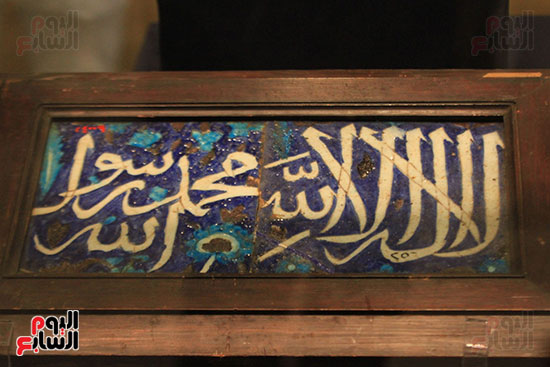 لا اله الا الله
محمد رسول
الله
اليوم السابع
اليوم السابع
اليوم السابع
اليوم السابع